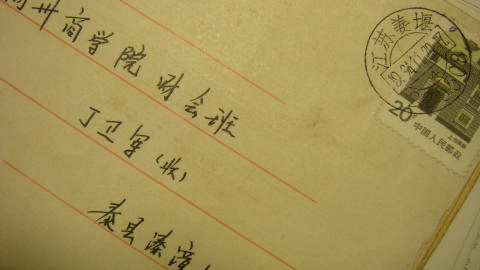 州商学院财会班
丁卫军（收）
泰县溱潼
江苏姜堰
20
中国人民邮政
上海民居